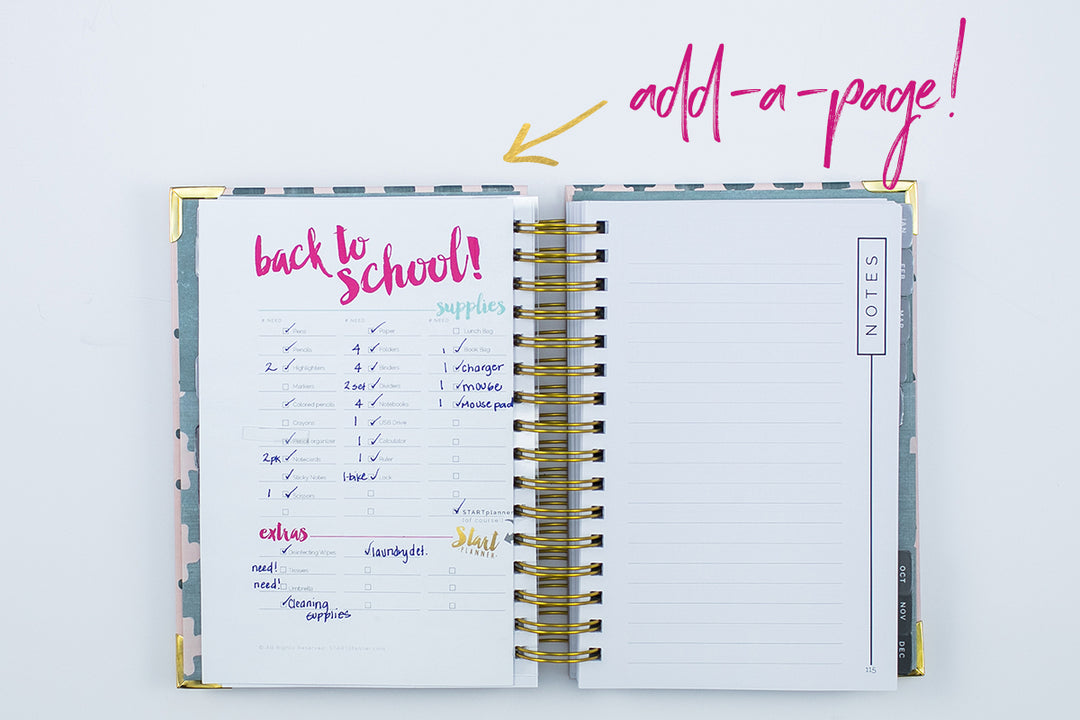 add-a-page!
back to
school!
supplies
# NEED # NEED # NEED
✓ Pens ✓ Paper Lunch Bag
✓ Pencils 4 ✓ Folders 1 ✓ Book Bag
2 ✓ Highlighters 4 ✓ Binders 1 ✓ charger
Markers 2 set ✓ Dividers 1 ✓ mouse
✓ Colored pencils 4 ✓ Notebooks 1 ✓ Mouse pad
Crayons 1 ✓ USB Drive
✓ Pencil organizer 1 ✓ Calculator
2pk ✓ Notecards 1 ✓ Ruler
✓ Sticky Notes 1-bike ✓ Lock
1 ✓ Scissors
✓ STARTplanner
(of course!)
extras
Start
PLANNER
✓ Disinfecting Wipes ✓ laundry det.
need! Tissues
need! Umbrella
✓ Cleaning
supplies
© All Rights Reserved. STARTplanner.com
NOTES
JAN
FEB
MAR
OCT
NOV
DEC
115